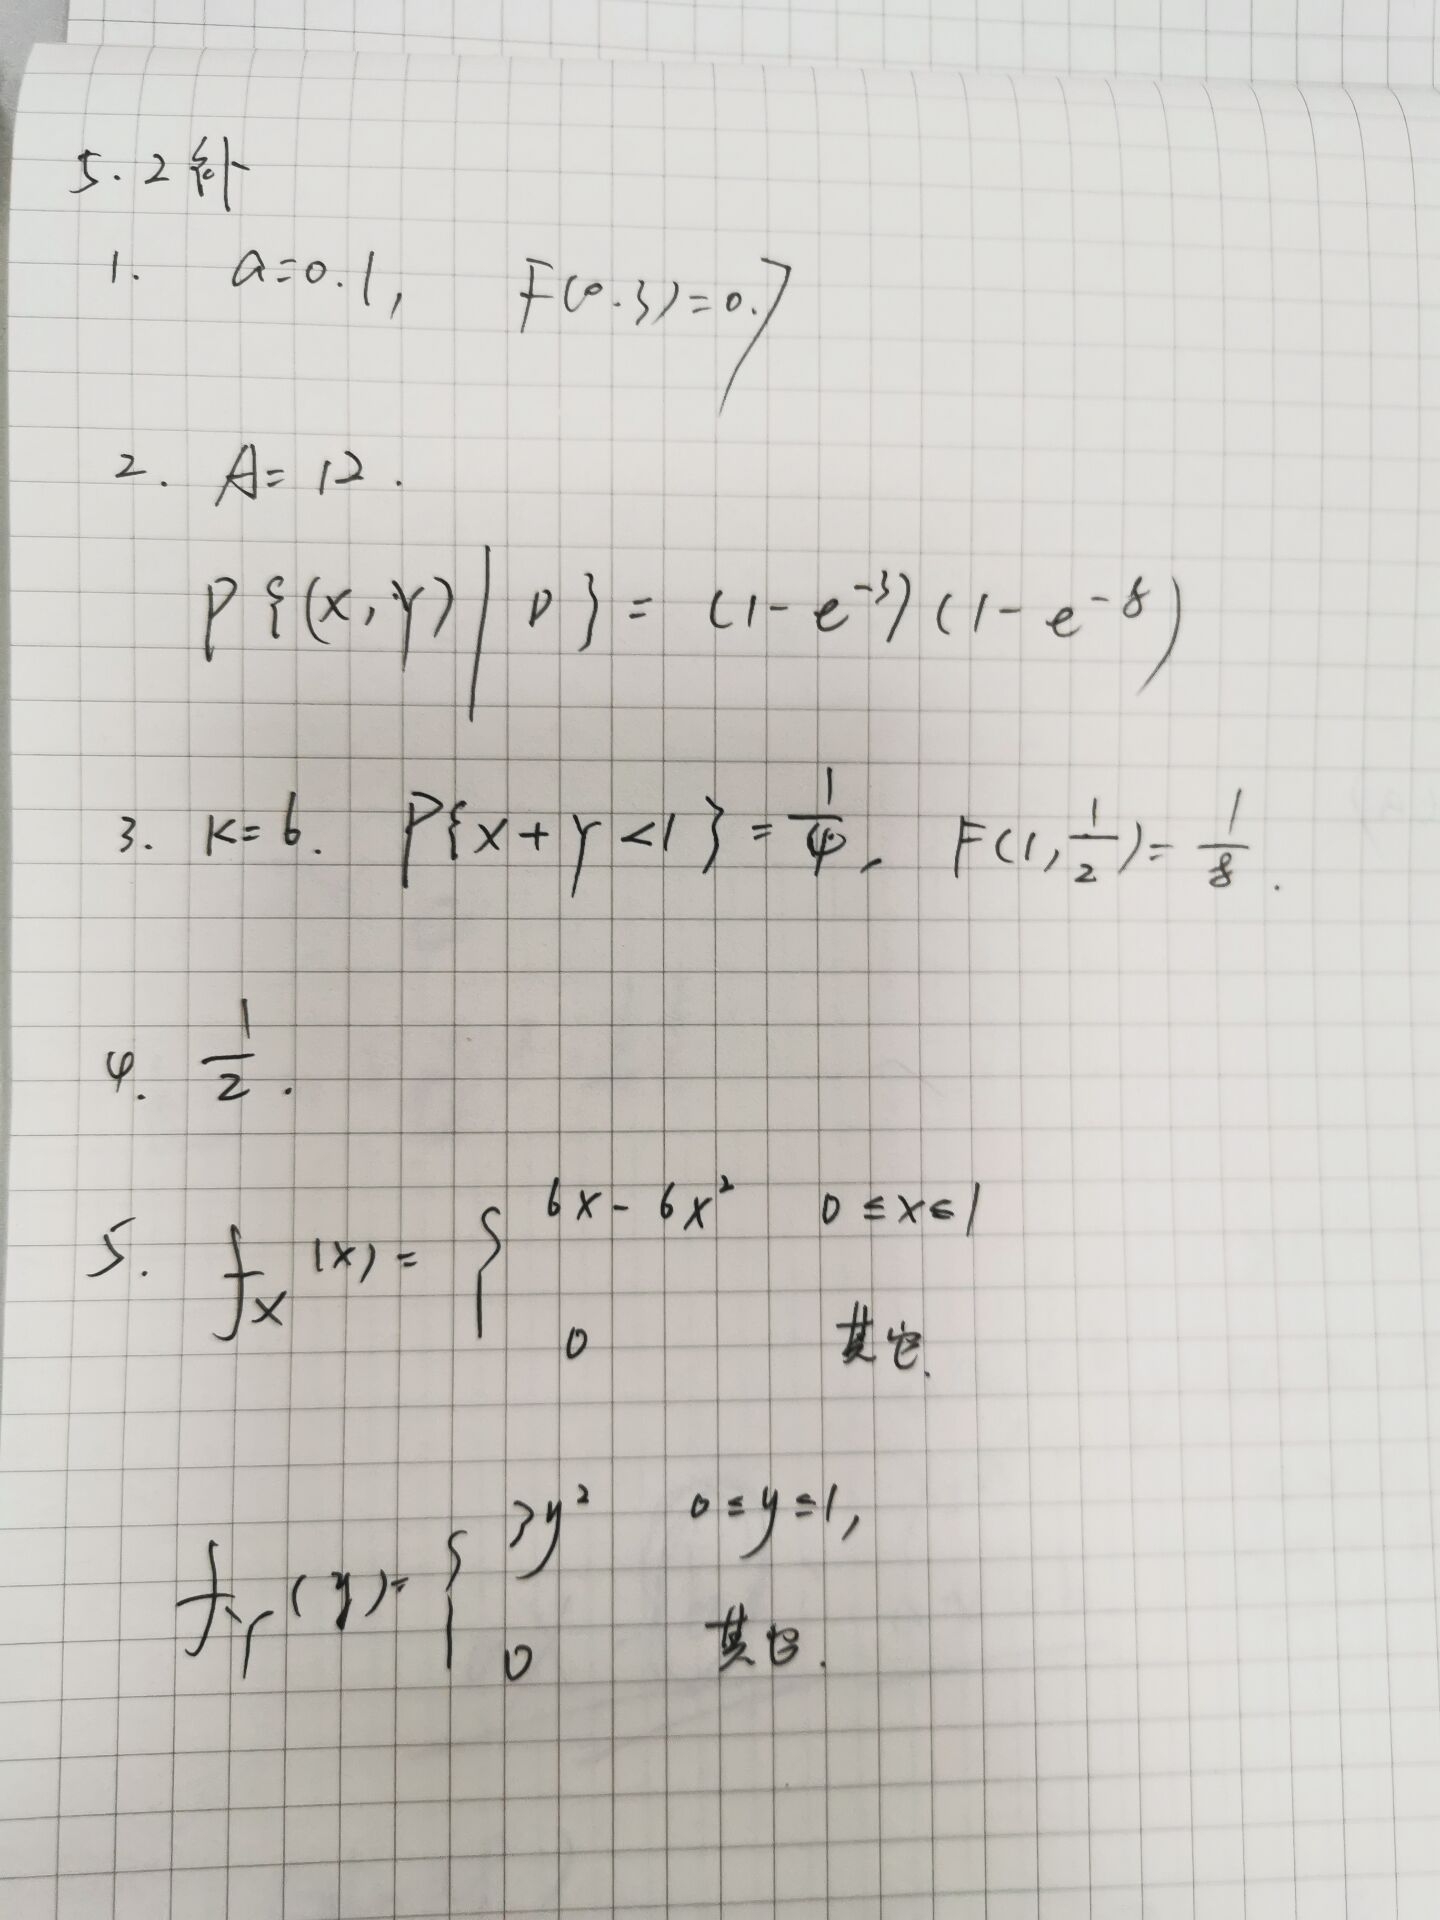 5.2补
1. a=0.1, F(0.3)=0.7
2. A=12.
P{(X,Y)|D}=(1-e^{-3})(1-e^{-8})
3. K=6. P{X+Y<1}=1/4, F(1,1/2)=1/8.
4. 1/2.
5. f_X(x)={ 6x-6x² 0≤x≤1
0 其它.
f_Y(y)={ 3y² 0≤y≤1,
0 其它.